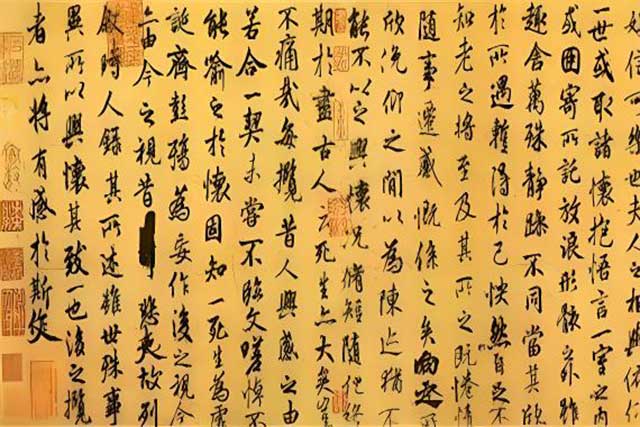 信可樂也夫人之相與俯仰
一世或取諸懷抱悟言一室之內
或因寄所託放浪形骸之外雖
趣舍萬殊靜躁不同當其欣
於所遇蹔得於己怏然自足不
知老之將至及其所之既惓情
隨事遷感慨係之矣向之所
欣俛仰之閒以為陳迹猶不
能不以之興懷況脩短隨化終
期於盡古人云死生亦大矣豈
不痛哉每攬昔人興感之由
若合一契未嘗不臨文嗟悼不
能喻之於懷固知一死生為虛
誕齊彭殤為妄作後之視今
亦由今之視昔悲夫故列
敘時人錄其所述雖世殊事
異所以興懷其致一也後之攬
者亦將有感於斯文